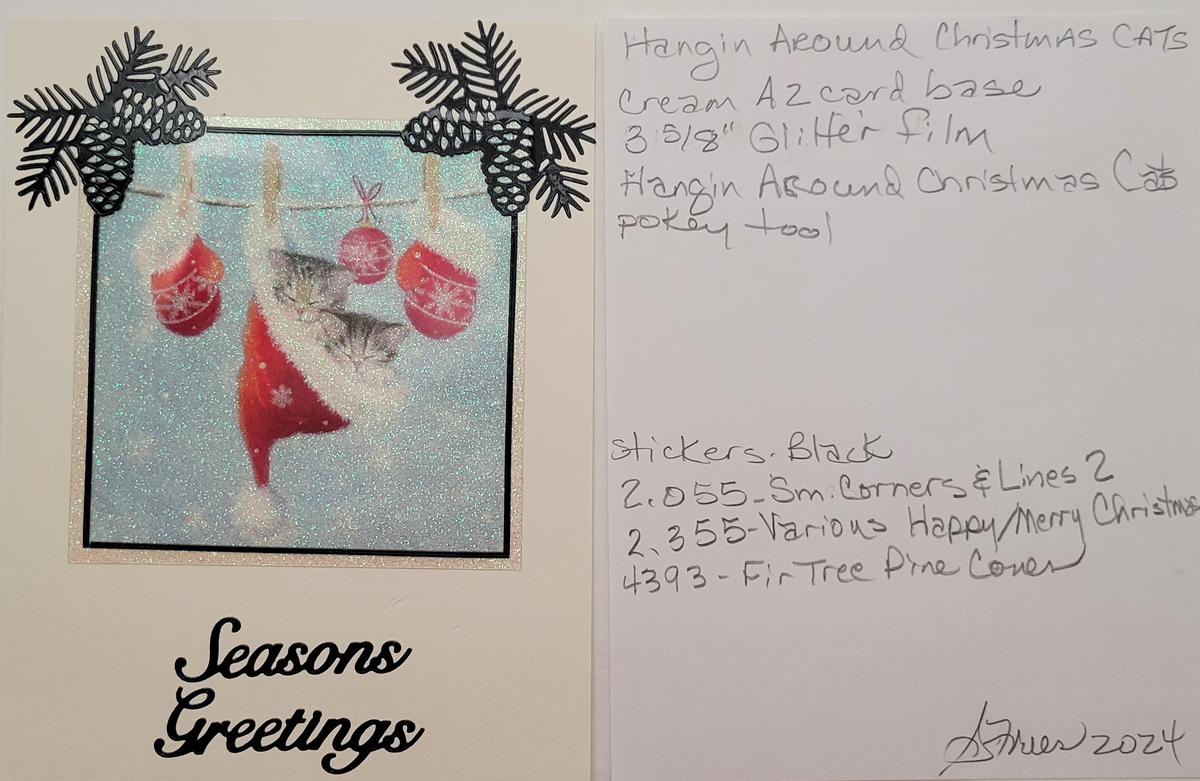 Seasons
Greetings
Hangin Around Christmas CATS
Cream A2 card base
3 5/8" Glitter film
Hangin Around Christmas Cats
pokey tool
stickers. Black
2.055-Sm. Corners & Lines 2
2.355-Various Happy/Merry Christmas
4393-Fir Tree Pine Cones
2024